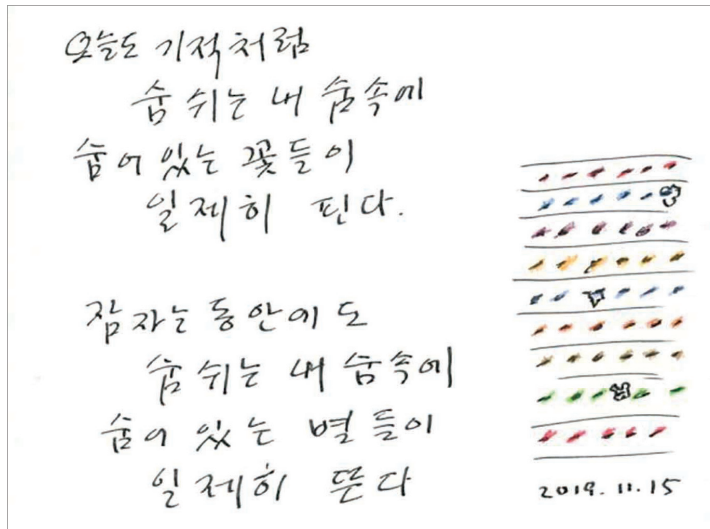 오늘도 기적처럼
숨 쉬는 내 숨속에
숨어 있는 꽃들이
일제히 핀다.
잠자는 동안에도
숨 쉬는 내 숨속에
숨어 있는 별들이
일제히 뜬다
2019.11.15